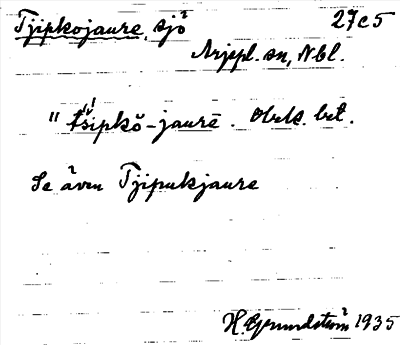 Tjipkojaure, sjö 27c5
Arjepl. sn, Nbl.
" tšipkŏ-jaurē. Obek. bet.
Se även Tjipukjaure
H. Grundström 1935